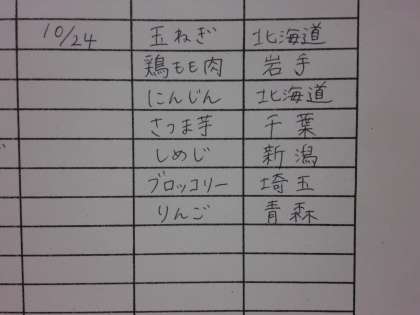 10/24 玉ねぎ 北海道
鶏もも肉 岩手
にんじん 北海道
さつま芋 千葉
しめじ 新潟
ブロッコリー 埼玉
りんご 青森